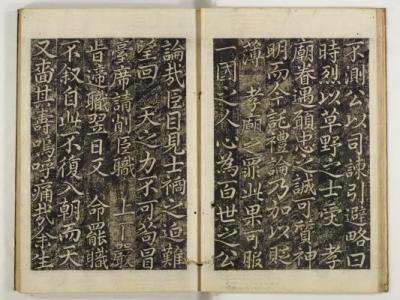 不測公以司諫引避略曰
時烈以草野之士受 孝
廟眷遇願忠之誠可質神
明而今託禮論乃加以貶
薄 孝廟之罪此果可服
一國之人心為百世之公
論哉臣目見士禍之迫難
望回 天之力不可苟冒
臺席請削臣職 上下嚴
旨遞職翌日又 命罷職
不叙自此不復入朝而天
又嗇其壽嗚呼痛哉余生